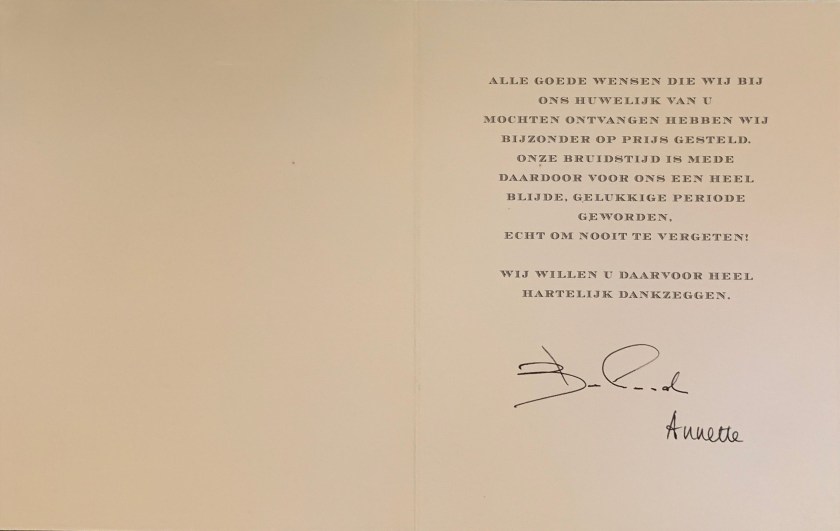 ALLE GOEDE WENSEN DIE WIJ BIJ
ONS HUWELIJK VAN U
MOCHTEN ONTVANGEN HEBBEN WIJ
BIJZONDER OP PRIJS GESTELD.
ONZE BRUIDSTIJD IS MEDE
DAARDOOR VOOR ONS EEN HEEL
BLIJDE, GELUKKIGE PERIODE
GEWORDEN.
ECHT OM NOOIT TE VERGETEN!
WIJ WILLEN U DAARVOOR HEEL
HARTELIJK DANKZEGGEN.
Annette